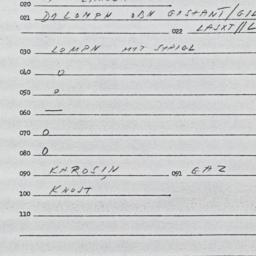 020
021 DI LOMPN ODN GISHANT/GIL
022 LASKT//L
030 LOMPN MIT SHPIGL
040 0
050 0
060 —
070 0
080 0
090 KAROSIN, 091 GAZ
100 KNOJT
110